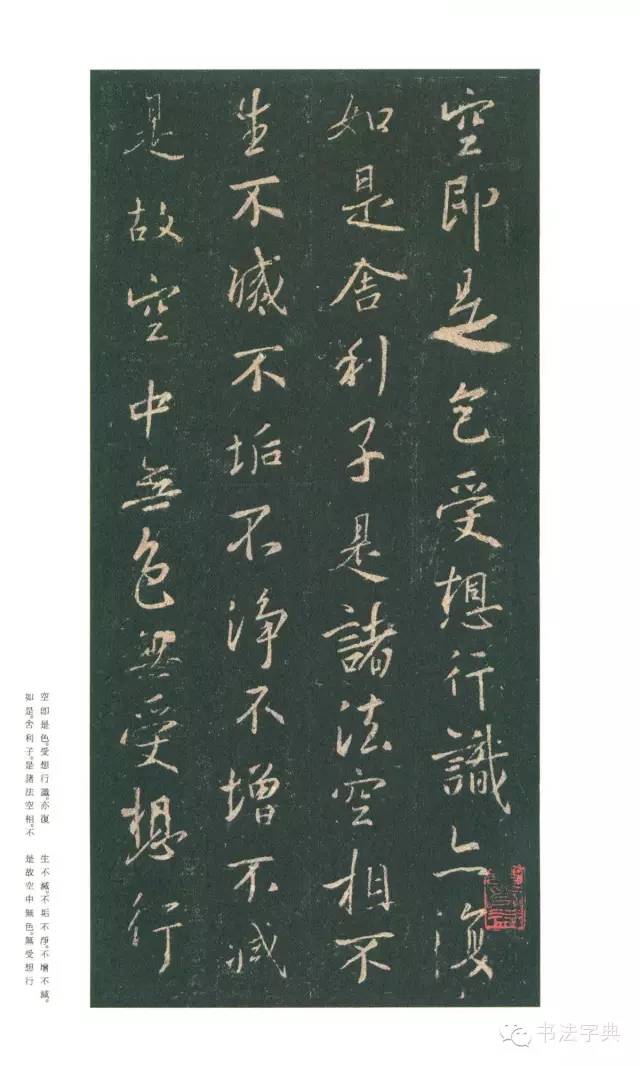 空即是色受想行識亦復
如是舍利子是諸法空相不
生不滅不垢不淨不增不減
是故空中無色無受想行
空即是色。受想行識。亦復
如是。舍利子。是諸法空相。不
生不滅。不垢不淨。不增不減。
是故空中無色。無受想行
书法字典